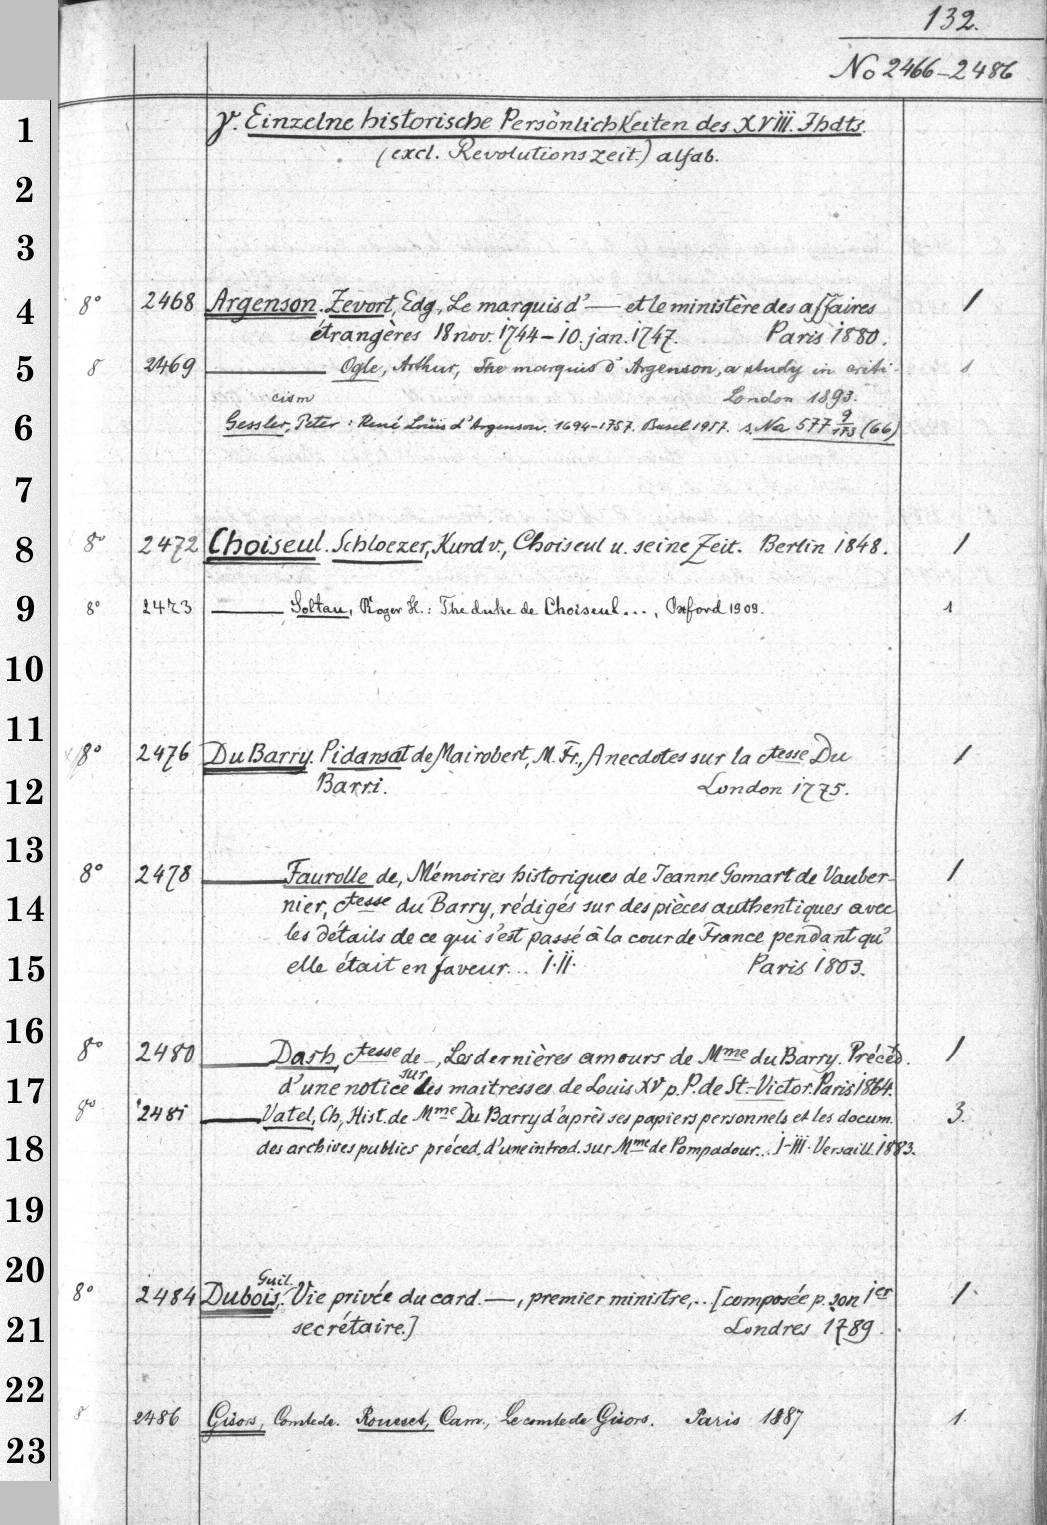 132.
No 2466-2486
1
γ. Einzelne historische Persönlichkeiten des XVIII. Jhdts.
(excl. Revolutionszeit.) alfab.
2
3
4
8° 2468 Argenson. Zevort, Edg., Le marquis d'— et le ministère des affaires 1
étrangères 18 nov. 1744-10. jan. 1747. Paris 1880.
5
8 2469 — Ogle, Arthur, The marquis d'Argenson, a study in criti- 1
cism London 1893.
6
Gessler, Peter: René Louis d'Argenson. 1694-1757. Basel 1957. s. Na 577 9/173 (66)
7
8
8° 2472 Choiseul. Schloezer, Kurd v., Choiseul u. seine Zeit. Berlin 1848. 1
9
8° 2473 — Soltau, Roger H.: The duke de Choiseul..., Oxford 1909. 1
10
11
8° 2476 Du Barry. Pidansat de Mairobert, M. Fr., Anecdotes sur la ctesse Du 1
12
Barri. London 1775.
13
8° 2478 — Faurolle de, Mémoires historiques de Jeanne Gomart de Vauber- 1
14
nier, ctesse du Barry, rédigés sur des pièces authentiques avec
les détails de ce qui s'est passé à la cour de France pendant qu'
15
elle était en faveur... I.II. Paris 1803.
16
8° 2480 — Dash, ctesse de —, Les dernières amours de Mme du Barry. Précéd. 1
17
d'une notice sur les maitresses de Louis XV p. P. de St.-Victor. Paris 1864.
8° 2481 — Vatel, Ch, Hist. de Mme Du Barry d'après ses papiers personnels et les docum. 3.
18
des archives publics précéd. d'une introd. sur Mme de Pompadour... I-III. Versaill. 1883.
19
20
8° 2484 Dubois, Guil. Vie privée du card. —, premier ministre,.. [composée p. son 1er 1.
21
secrétaire.] Londres 1789.
22
8 2486 Gisors, Comte de. Rousset, Cam., Le comte de Gisors. Paris 1887 1.
23